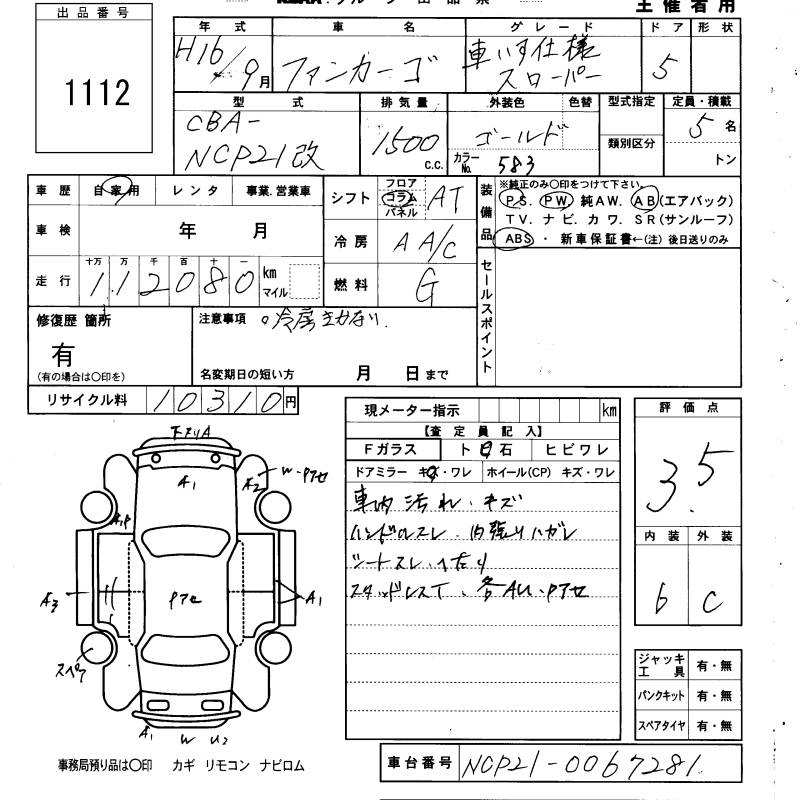 グループ 出品票
主催者用
出品番号
1112
年式 車名 グレード ドア 形状
H16/9月 ファンカーゴ 車いす仕様 スローパー 5
型式 排気量 外装色 色替 型式指定 定員・積載
CBA-NCP21改 1500 c.c. ゴールド カラーNo. 583 類別区分 5名
トン
車歴 自家用 レンタ 事業.営業車
車検 年 月
走行 十万 万 千 百 十 一
112080 km マイル
シフト フロア コラム パネル AT
冷房 A A/C
燃料 G
装備品
※純正のみ○印をつけて下さい。
P.S. PW 純AW. AB(エアバック)
TV.ナビ.カワ.SR(サンルーフ)
ABS・新車保証書←(注)後日送りのみ
セールスポイント
修復歴 箇所
有
(有の場合は○印を)
注意事項 ○冷房きかない.
名変期日の短い方 月 日まで
リサイクル料 10310円
現メーター指示 km
【査定員記入】
Fガラス ト目石 ヒビワレ
ドアミラー キズ・ワレ ホイール(CP) キズ・ワレ
車内 汚れ・キズ
ハンドルスレ.内張りハガレ
シートスレ・ヘたり
スタッドレスT.各AU・Pアセ
評価点
3.5
内装 外装
6 C
ジャッキ工具 有・無
パンクキット 有・無
スペアタイヤ 有・無
下スリA
A1
A2 W・Pアセ
A,P
A3
Pアセ
A1
スペア
A1 W U2
事務局預り品は○印 カギ リモコン ナビロム
車台番号 NCP21-0067281